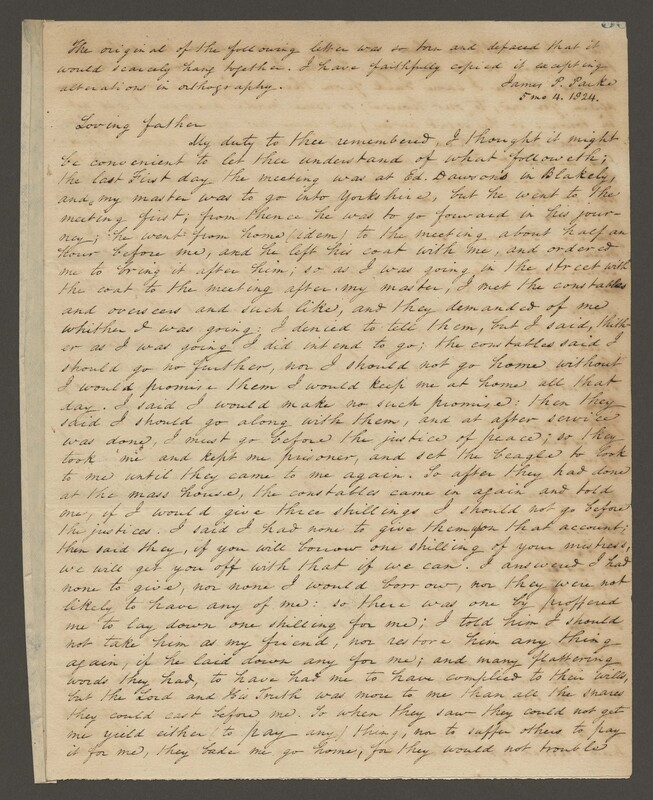 The original of the following letter was so torn and defaced that it
would scarcely hang together. I have faithfully copied it excepting
alterations in orthography. James P. Parke
5 mo 4. 1824.
Loving father
My duty to thee remembered, I thought it might
be convenient to let thee understand of what followeth;
the last First day the meeting was at Ed. Dawson's in Blakely,
and my master was to go into Yorkshire, but he went to the
meeting first; from thence he was to go forward in his jour-
ney; he went from home (idem) to the meeting about half an
hour before me, and he left his coat with me, and ordered
me to bring it after him; so as I was going in the street with
the coat to the meeting after my master, I met the constables
and overseers and such like, and they demanded of me
whither I was going: I denied to tell them, but I said, thith-
er as I was going I did intend to go; the constables said I
should go no further, nor I should not go home without
I would promise them I would keep me at home all that
day. I said I would make no such promise: then they
said I should go along with them, and at after service
was done, I must go before the justice of peace; so they
took me and kept me prisoner, and set the beagle to look
to me until they came to me again. So after they had done
at the mass house, the constables came in again and told
me, if I would give three shillings I should not go before
the justices. I said I had none to give them upon that account;
then said they, if you will borrow one shilling of your mistress,
we will get you off with that if we can. I answered I had
none to give, nor none I would borrow, nor they were not
likely to have any of me: so there was one by proffered
me to lay down one shilling for me; I told him I should
not take him as my friend, nor restore him any thing
again, if he laid down any for me; and many flattering
words they had, to have had me to have complied to their wills,
but the Lord and His Truth was more to me than all the snares
they could cast before me. So when they saw they could not get
me yield either (to pay any) thing, nor to suffer others to pay
it for me, they bade me go home, for they would not trouble